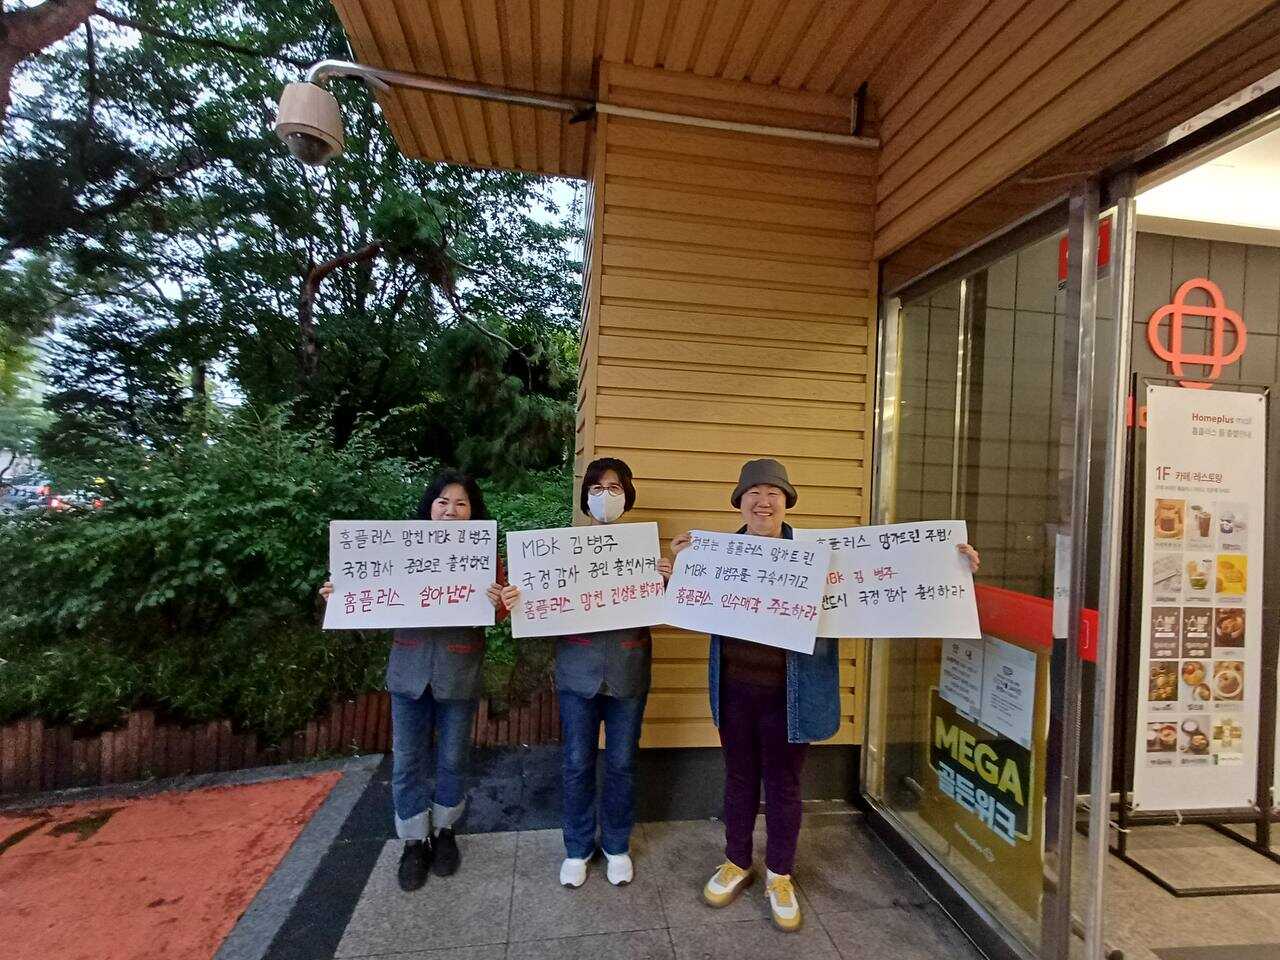 홈플러스 망친 MBK 김병주
국정감사 증인으로 출석하면
홈플러스 살아난다
MBK 김병주
국정감사 증인 출석시켜
홈플러스 망친 진상을 밝혀라
정부는 홈플러스 망가트린
MBK 김병주를 구속시키고
홈플러스 인수매각 주도하라
홈플러스 망가트린 주범!
MBK 김 병주
반드시 국정감사 출석하라
Homeplus mall
홈플러스 몰 층별안내
1F 카페/레스토랑
안 내
MEGA
골든위크
Homeplus